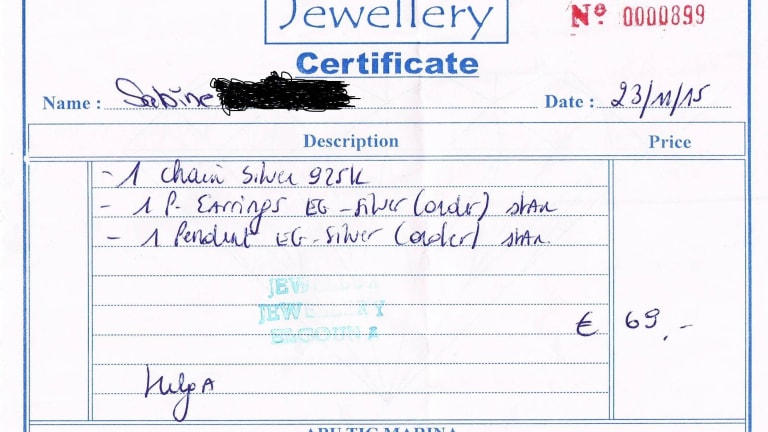 Jewellery
Nº 0000899
Certificate
Name : Sabine
Date : 23/11/15
Description
Price
- 1 Chain Silver 925K
- 1 P- Earrings EG-Silver (order) star
- 1 Pendent EG-Silver (order) star
JEWELLERY
€ 69,-
Helga
ABU TIG MARINA